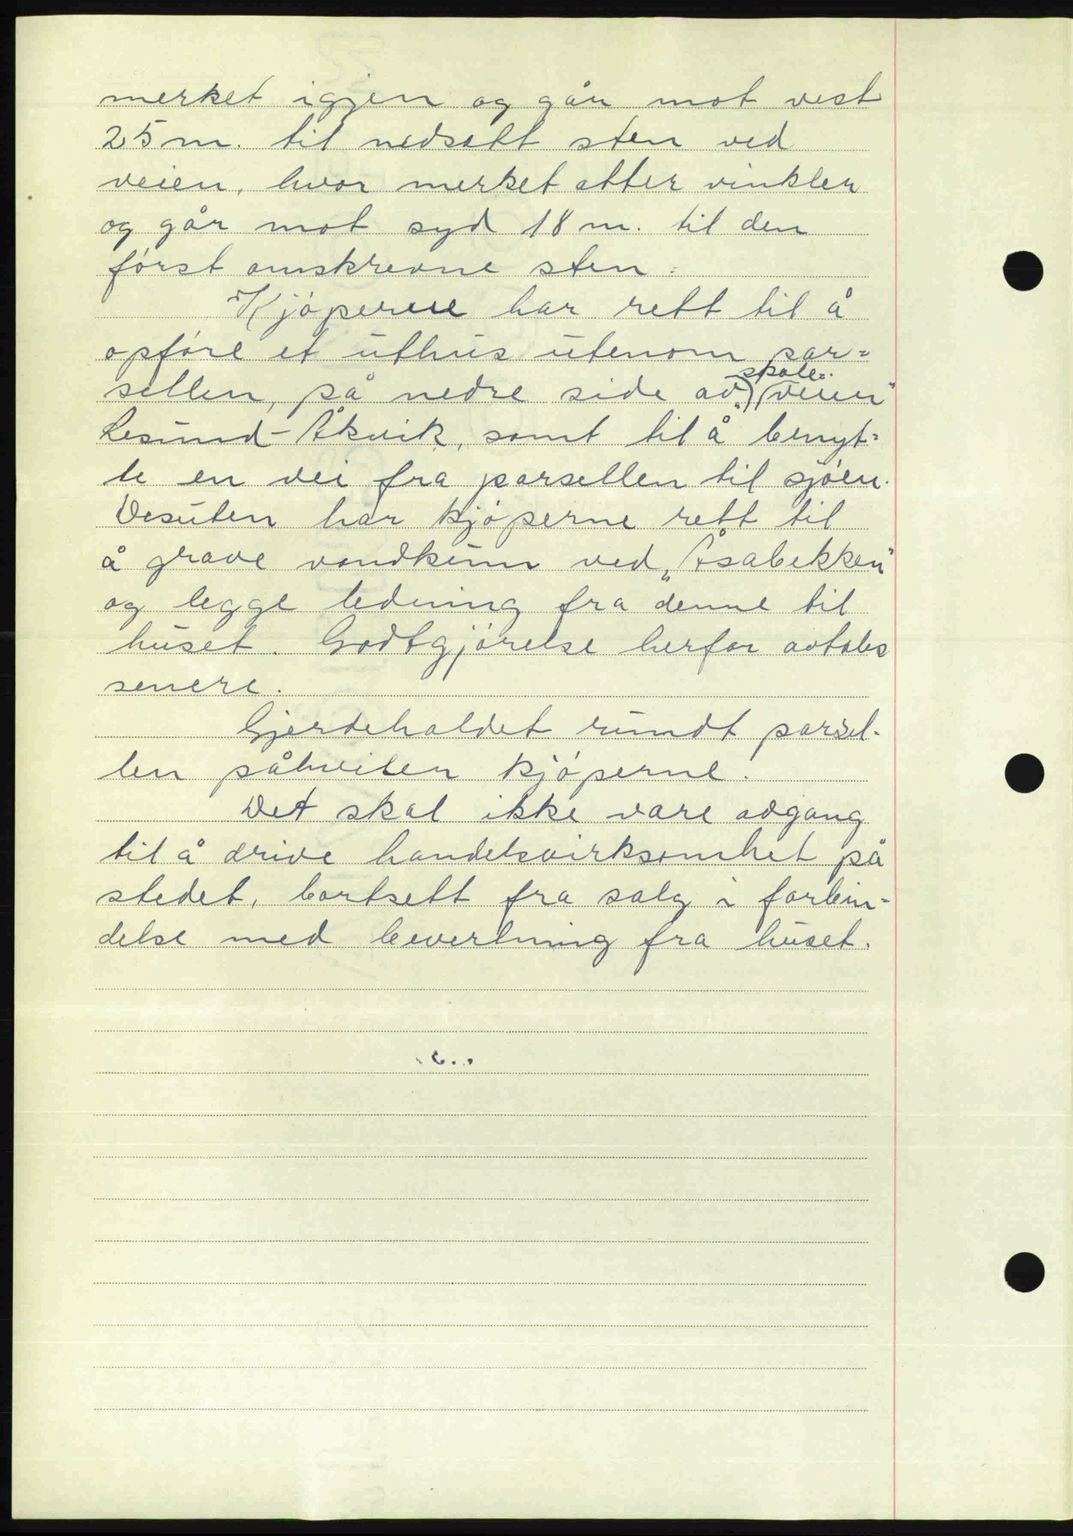 merket igjen og går mot vest
25 m. til nedsatt sten ved
veien, hvor merket atter vinkler
og går mot syd 18 m. til den
først omskrevne sten.
Kjøperne har rett til å
opføre et uthus utenom par=
skole=
sellen, på nedre side av „veien"
Lesund - Åkvik, samt til å benyt=
te en vei fra parsellen til sjøen.
Desuten har kjøperne rett til
å grave vandkum ved „Åsabekken"
og legge ledning fra denne til
huset. Godtgjørelse herfor avtales
senere.
Gjerdeholdet rundt parsel-
len påhviler kjøperne.
Det skal ikke være adgang
til å drive handelsvirksomhet på
stedet, bortsett fra salg i forbin=
delse med bevertning fra huset.